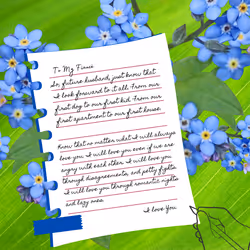 To My Fiancé
So, future husband, just know that
I look forward to it all. From our
first dog to our first kid. From our
first apartment to our first house.
Know that no matter what I will always
love you. I will love you even if we are
angry with each other. I will love you
through disagreements, and petty fights.
I will love you through romantic nights
and lazy ones.
I love You